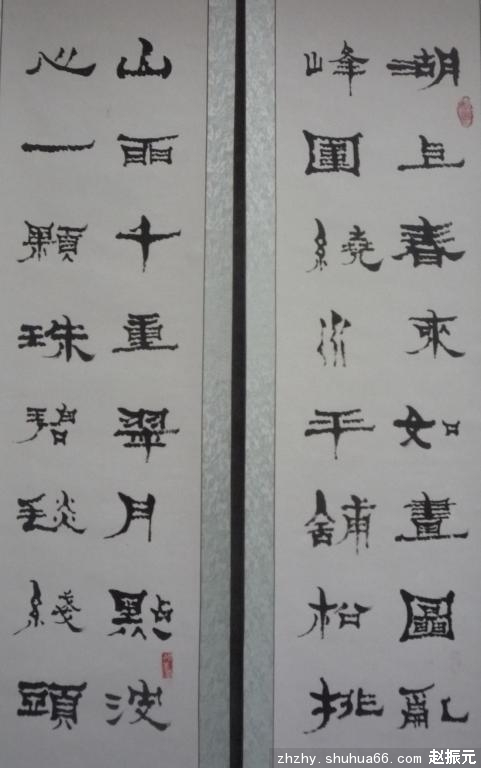 湖上春來如畫圖亂
峰圍繞水平舖松排
山面千重翠月點波
心一顆珠碧毯綫頭
zhzhy.shuhua66.com 赵振元